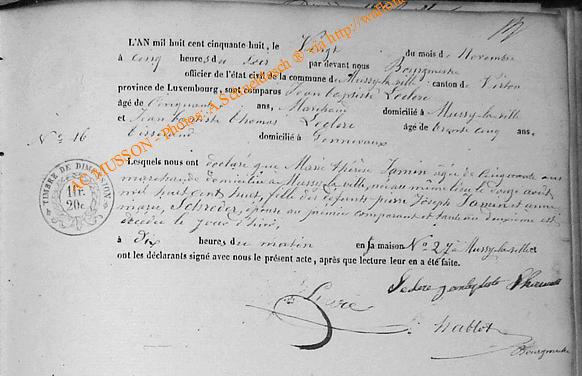 L'AN mil huit cent cinquante huit, le Vingt du mois de Novembre
à cinq heures du soir par devant nous Bourgmestre
officier de l'état civil de la commune de Mussy-la-ville canton de Virton
province de Luxembourg, sont comparus Jean baptiste Leclere
âgé de Cinquante ans, Marchand domicilié à Mussy-la-ville
et Jean baptiste thomas Leclere âgé de trente cinq ans,
domicilié à Gennevaux
N° 16
Lesquels nous ont déclaré que Marie thérèse Jamin âgée de cinquante ans
marchande domiciliée à Mussy-la-ville, née au même lieu le août
mil huit cent huit, fille des défunts pierre Joseph Jamin et anne
marie Schreder, épouse au premier comparant et tante au deuxième est
décédée le jour d'hier,
à dix heures du matin en sa maison N° 27 à Mussy-la-ville
ont les déclarants signé avec nous le présent acte, après que lecture leur en a été faite.
TIMBRE DE DIMENSION
1 fr.
20 c.
Leclere jeanbptiste
hablot
Bourgmestre
MUSSON - Photos: A.Schleidesch ® via http://